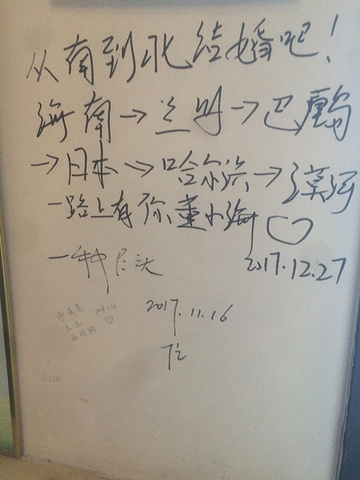 从南到北结婚吧！
海南→兰州→巴厘岛
→日本→哈尔滨→漠河
一路上有你董小海♡
2017.12.27
一种尽头
2017.11.16